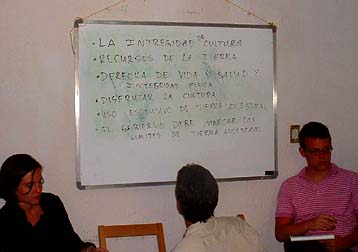 • LA INTREGIDAD DE CULTURA
• RECURSOS DE LA TIERRA
• DERECHA DE VIDA Y SALUD Y
INTEGRIDAD FISICA
• DISFRUTAR LA CULTURA
• USO EXCLUSIVO DE TIERRA
• EL GOBIERNO DEBE MARCAR LOS
LIMITES DE TIERRA ANCESTRAL